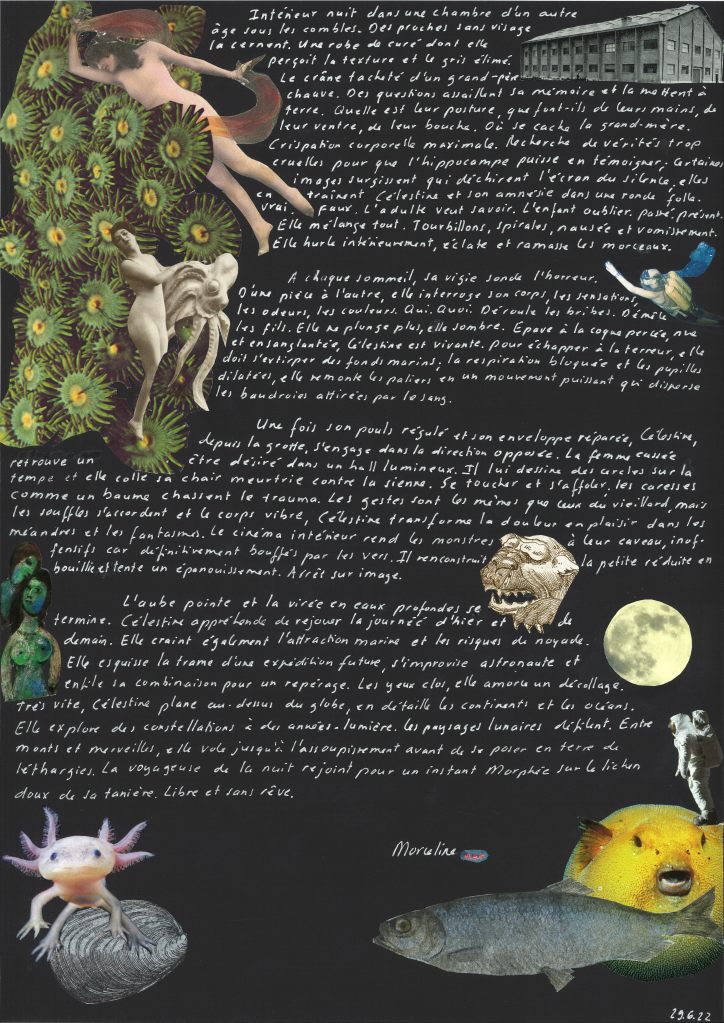 Intérieur nuit dans une chambre d'un autre
âge sous les combles. Des proches sans visage
la cernent. Une robe de curé dont elle
perçoit la texture et le gris élimé.
Le crâne tacheté d'un grand-père
chauve. Des questions assaillent sa mémoire et la mettent à
terre. Quelle est leur posture, que font-ils de leurs mains, de
leur ventre, de leur bouche. Où se cache la grand-mère.
Crispation corporelle maximale. Recherche de vérités trop
cruelles pour que l'hippocampe puisse en témoigner. Certaines
images surgissent qui déchirent l'écran du silence, elles
entraînent Célestine et son amnésie dans une ronde folle.
Vrai faux. L'adulte veut savoir. L'enfant oublier. passé, présent.
Elle mélange tout. Tourbillons, spirales, nausée et vomissement.
Elle hurle intérieurement, éclate et ramasse les morceaux.
A chaque sommeil, sa vigie sonde l'horreur.
D'une pièce à l'autre, elle interroge son corps, les sensations,
les odeurs, les couleurs. Qui. Quoi. Déroule les bribes. Démêle
les fils. Elle ne plonge plus, elle sombre. Epave à la coque percée, nue
et ensanglantée, Célestine est vivante. Pour échapper à la terreur, elle
doit s'extirper des fonds marins, la respiration bloquée et les pupilles
dilatées, elle remonte les paliers en un mouvement puissant qui disperse
les baudroies attirées par le sang.
Une fois son pouls régulé et son enveloppe réparée, Célestine,
depuis la grotte, s'engage dans la direction opposée. La femme cassée
retrouve un être désiré dans un hall lumineux. Il lui dessine des cercles sur la
tempe et elle colle sa chair meurtrie contre la sienne. Se toucher et s'affoler, les caresses
comme un baume chassent le trauma. Les gestes sont les mêmes que ceux du vieillard, mais
les souffles s'accordent et le corps vibre, Célestine transforme la douleur en plaisir dans les
méandres et les fantasmes. Le cinéma intérieur rend les monstres à leur caveau, inof-
fensifs car définitivement bouffés par les vers. Il reconstruit la petite réduite en
bouillie et tente un épanouissement. Arrêt sur image.
L'aube pointe et la virée en eaux profondes se
termine. Célestine appréhende de rejouer la journée d'hier et de
demain. Elle craint également l'attraction marine et les risques de noyade.
Elle esquisse la trame d'une expédition future, s'improvise astronaute et
enfile sa combinaison pour un repérage. Les yeux clos, elle amorce un décollage.
Très vite, Célestine plane au-dessus du globe, en détaille les continents et les océans.
Elle explore des constellations à des années-lumière. Les paysages lunaires défilent. Entre
monts et merveilles, elle vole jusqu'à l'assoupissement avant de se poser en terre de
léthargies. La voyageuse de la nuit rejoint pour un instant Morphée sur le lichen
doux de sa tanière. Libre et sans rêve.
Morceline
29.6.22